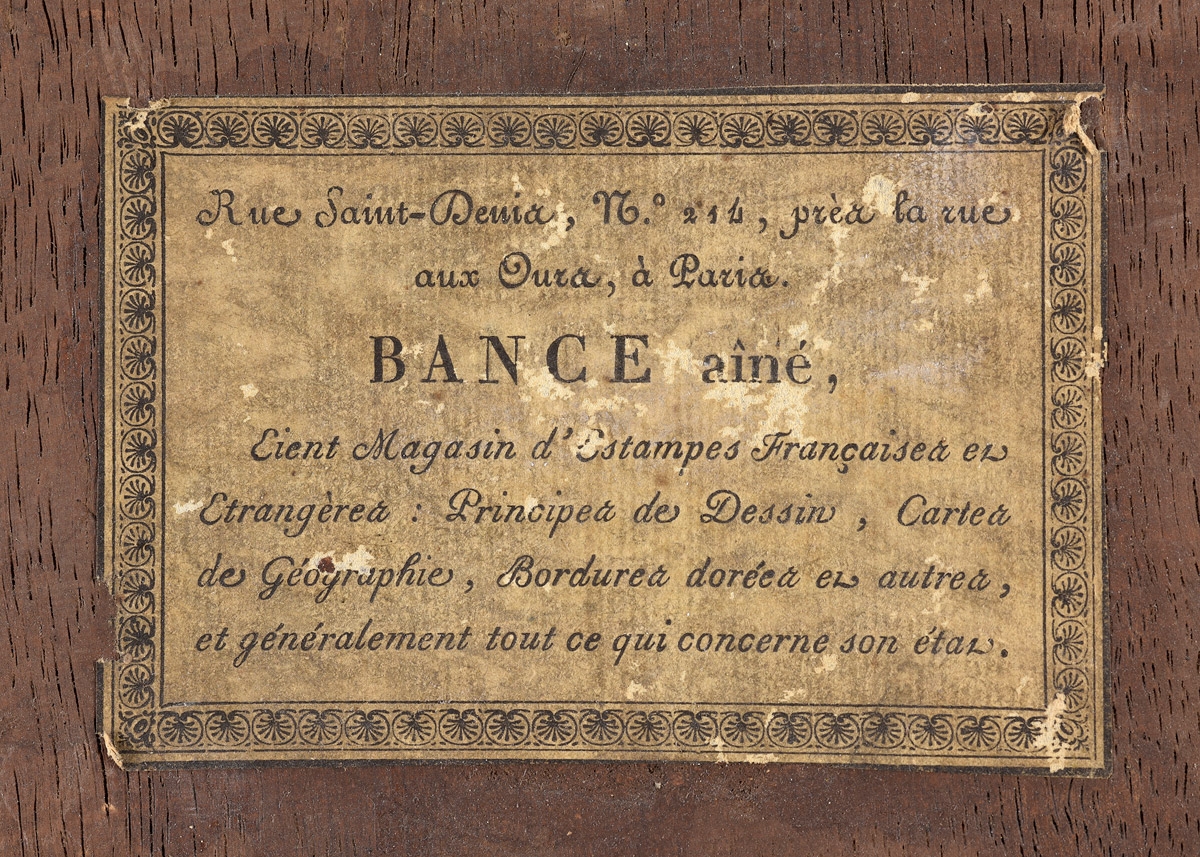 Rue Saint-Denis, N.º 214, près la rue
aux Ours, à Paris.
BANCE aîné,
Tient Magasin d'Estampes Françaises et
Etrangères : Principes de Dessin, Cartes
de Géographie, Bordures dorées et autres,
et généralement tout ce qui concerne son état.